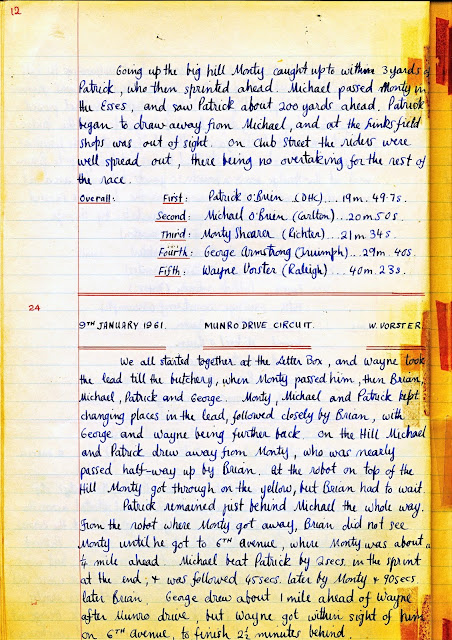 12
Going up the big hill Monty caught up to within 3 yards of
Patrick, who then sprinted ahead. Michael passed Monty in
the Esses, and saw Patrick about 200 yards ahead. Patrick
began to draw away from Michael, and at the Funksfield
shops was out of sight. On Club Street the riders were
well spread out, there being no overtaking for the rest of
the race.
Overall: First: Patrick O'Brien (DHC)....19m. 49.7s.
Second: Michael O'Brien (Carlton)...20m50s.
Third: Monty Shearer (Richter)....21m. 34s.
Fourth: George Armstrong (Triumph)...29m. 40s.
Fifth: Wayne Vorster (Raleigh)....40m. 23s.
24
9TH JANUARY 1961. MUNRO DRIVE CIRCUIT. W. VORSTER
We all started together at the Letter Box, and Wayne took
the lead till the butchery, when Monty passed him, then Brian,
Michael, Patrick and George. Monty, Michael and Patrick kept
changing places in the lead, followed closely by Brian, with
George and Wayne being further back. On the Hill Michael
and Patrick drew away from Monty, who was nearly
passed half-way up by Brian. At the robot on top of the
Hill Monty got through on the yellow, but Brian had to wait.
Patrick remained just behind Michael the whole way.
From the robot where Monty got away, Brian did not see
Monty until he got to 6TH avenue, where Monty was about a
¼ mile ahead. Michael beat Patrick by 2secs. in the sprint
at the end, & was followed 45secs. later by Monty & 90secs.
later Brian. George drew about 1 mile ahead of Wayne
after Munro Drive, but Wayne got within sight of him
on 6TH avenue, to finish 2½ minutes behind.